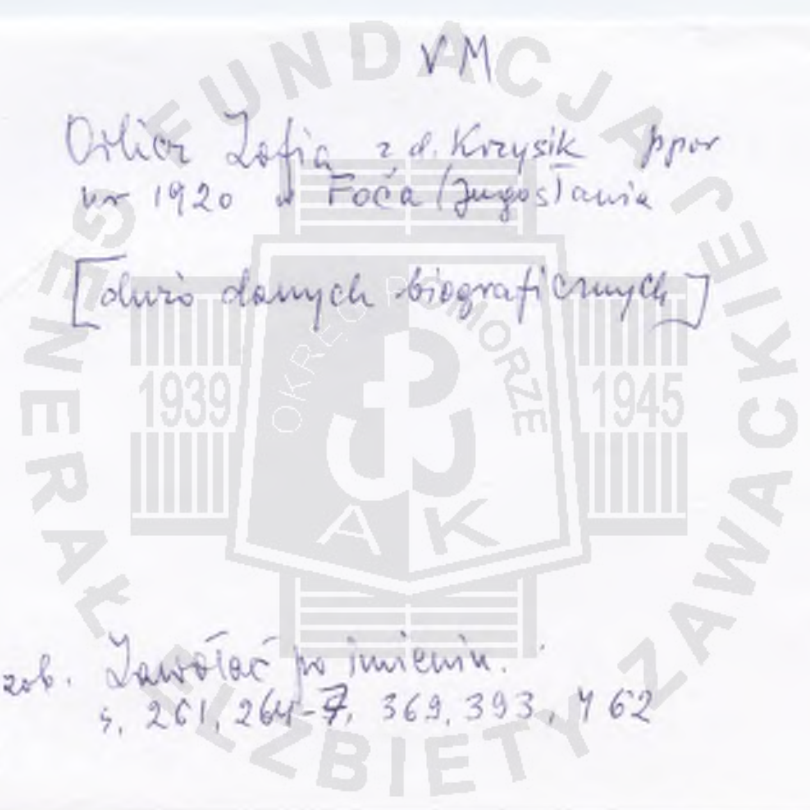 VM
Orlicz Zofia z d. Krzysik ppor
ur 1920 w Foča (Jugosławia
[dużo danych biograficznych]
zob. Zawołać po imieniu.
s. 261, 264-7, 369, 393, 462
FUNDACJA GENERAŁ ELŻBIETY ZAWACKIEJ
OKRĘG POMORZE
1939
1945
AK